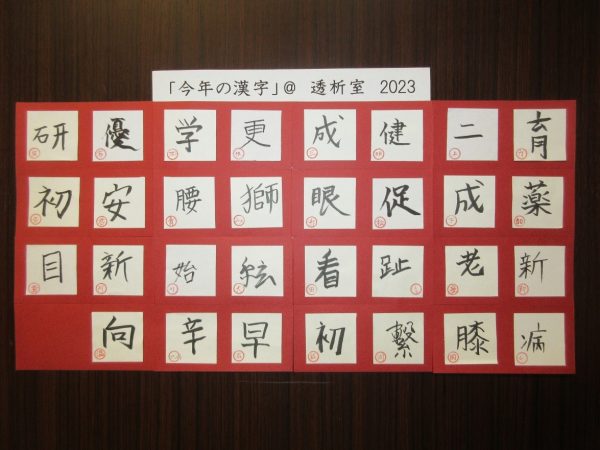 「今年の漢字」@ 透析室 2023
研 優 学 更 成 健 二 育
初 安 腰 獅 眼 促 成 薬
目 新 始 看 趾 老 新
向 辛 早 初 繋 膝 病